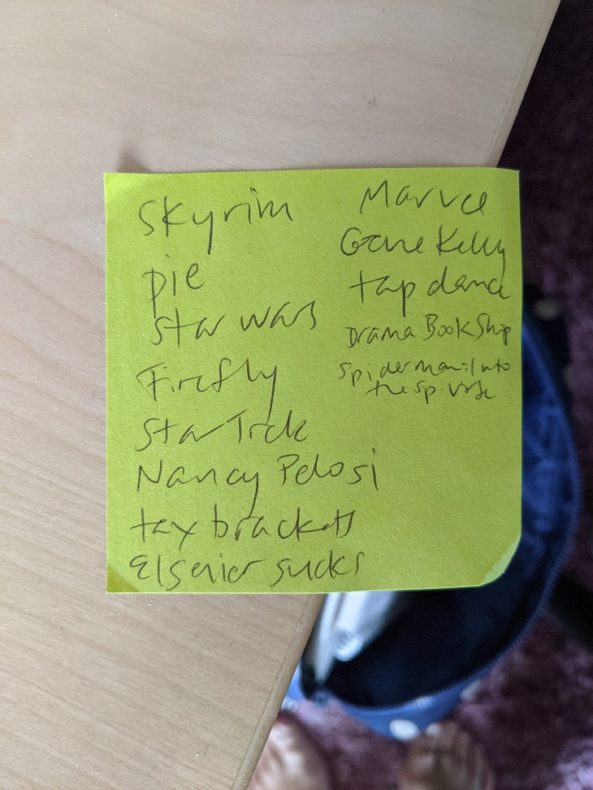 Skyrim
pie
Star wars
Firefly
Star Trek
Nancy Pelosi
tax brackets
Elsevier sucks
Marvel
Gene Kelly
tap dance
Drama Book Shop
Spiderman: Into
the Spiverse